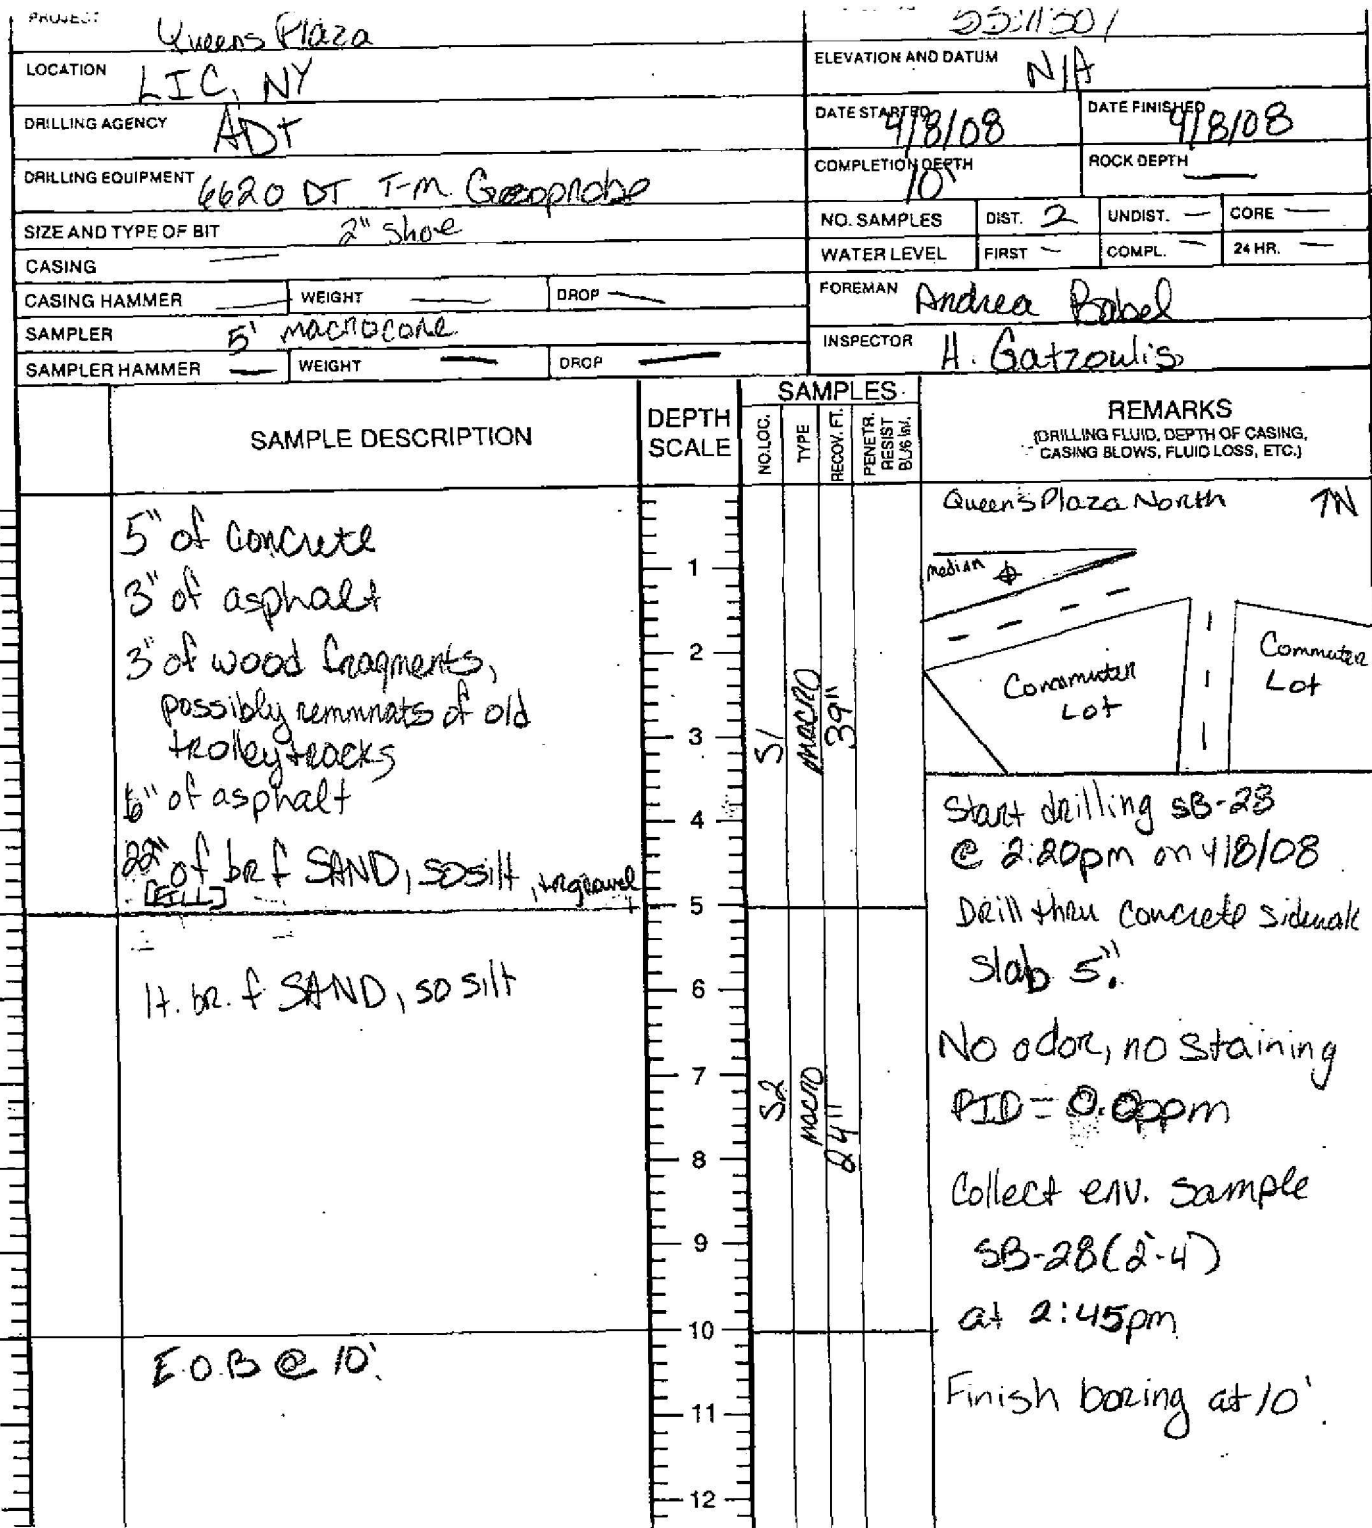 PROJECT Queens Plaza
LOCATION LIC, NY
ELEVATION AND DATUM N/A
DRILLING AGENCY ADT
DATE STARTED 4/8/08 DATE FINISHED 4/8/08
DRILLING EQUIPMENT 6620 DT T-M Geoprobe
COMPLETION DEPTH 10' ROCK DEPTH —
SIZE AND TYPE OF BIT 2" shoe
NO. SAMPLES DIST. 2 UNDIST. — CORE —
CASING —
WATER LEVEL FIRST — COMPL. — 24 HR. —
CASING HAMMER — WEIGHT — DROP —
FOREMAN Andrea Babel
SAMPLER 5' macrocore
INSPECTOR H. Gatzoulis
SAMPLER HAMMER — WEIGHT — DROP —
SAMPLE DESCRIPTION
DEPTH SCALE
SAMPLES
NO.LOC. TYPE RECOV. FT. PENETR. RESIST BL/6 IN.
REMARKS
(DRILLING FLUID, DEPTH OF CASING,
CASING BLOWS, FLUID LOSS, ETC.)
5" of concrete
3" of asphalt
3" of wood fragments,
possibly remmnats of old
trolley tracks
6" of asphalt
22" of br f SAND, so silt, tr gravel
[FILL]
lt. br. f SAND, so silt
E.O.B @ 10'.
1
2
3
4
5
6
7
8
9
10
11
12
S1 macro 39"
S2 macro 24"
Queens Plaza North ↑N
median
Commuter
Lot
Commuter
Lot
Start drilling SB-28
@ 2:20pm on 4/8/08
Drill thru concrete sidewalk
slab 5".
No odor, no staining
PID = 0.0ppm
Collect env. sample
SB-28(2'-4')
at 2:45pm
Finish boring at 10'.